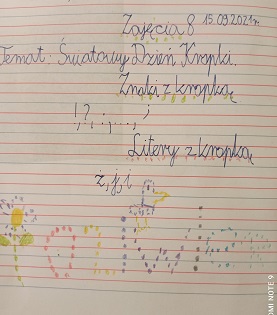 Zajęcia 8 15.09.2021r.
Temat: Światowy Dzień Kropki.
Znaki z kropką
!, ?, :, ..., ;
Litery z kropką
ż, j, i
MI NOTE 9